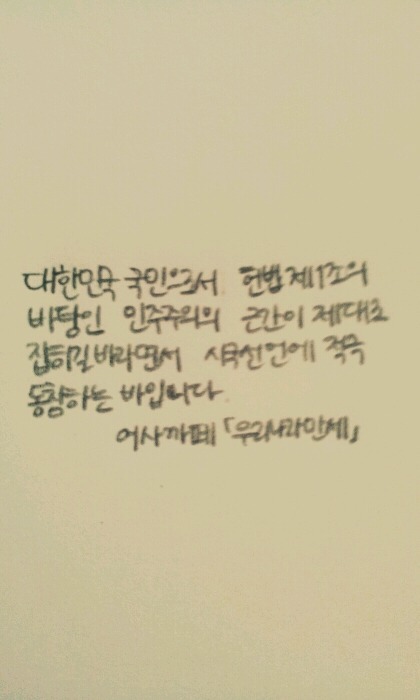 대한민국 국민으로서 헌법 제1조의
바탕인 민주주의의 근간이 제대로
잡히길 바라면서 시국선언에 적극
동참하는 바입니다.
어사까페 「우리나라만세」